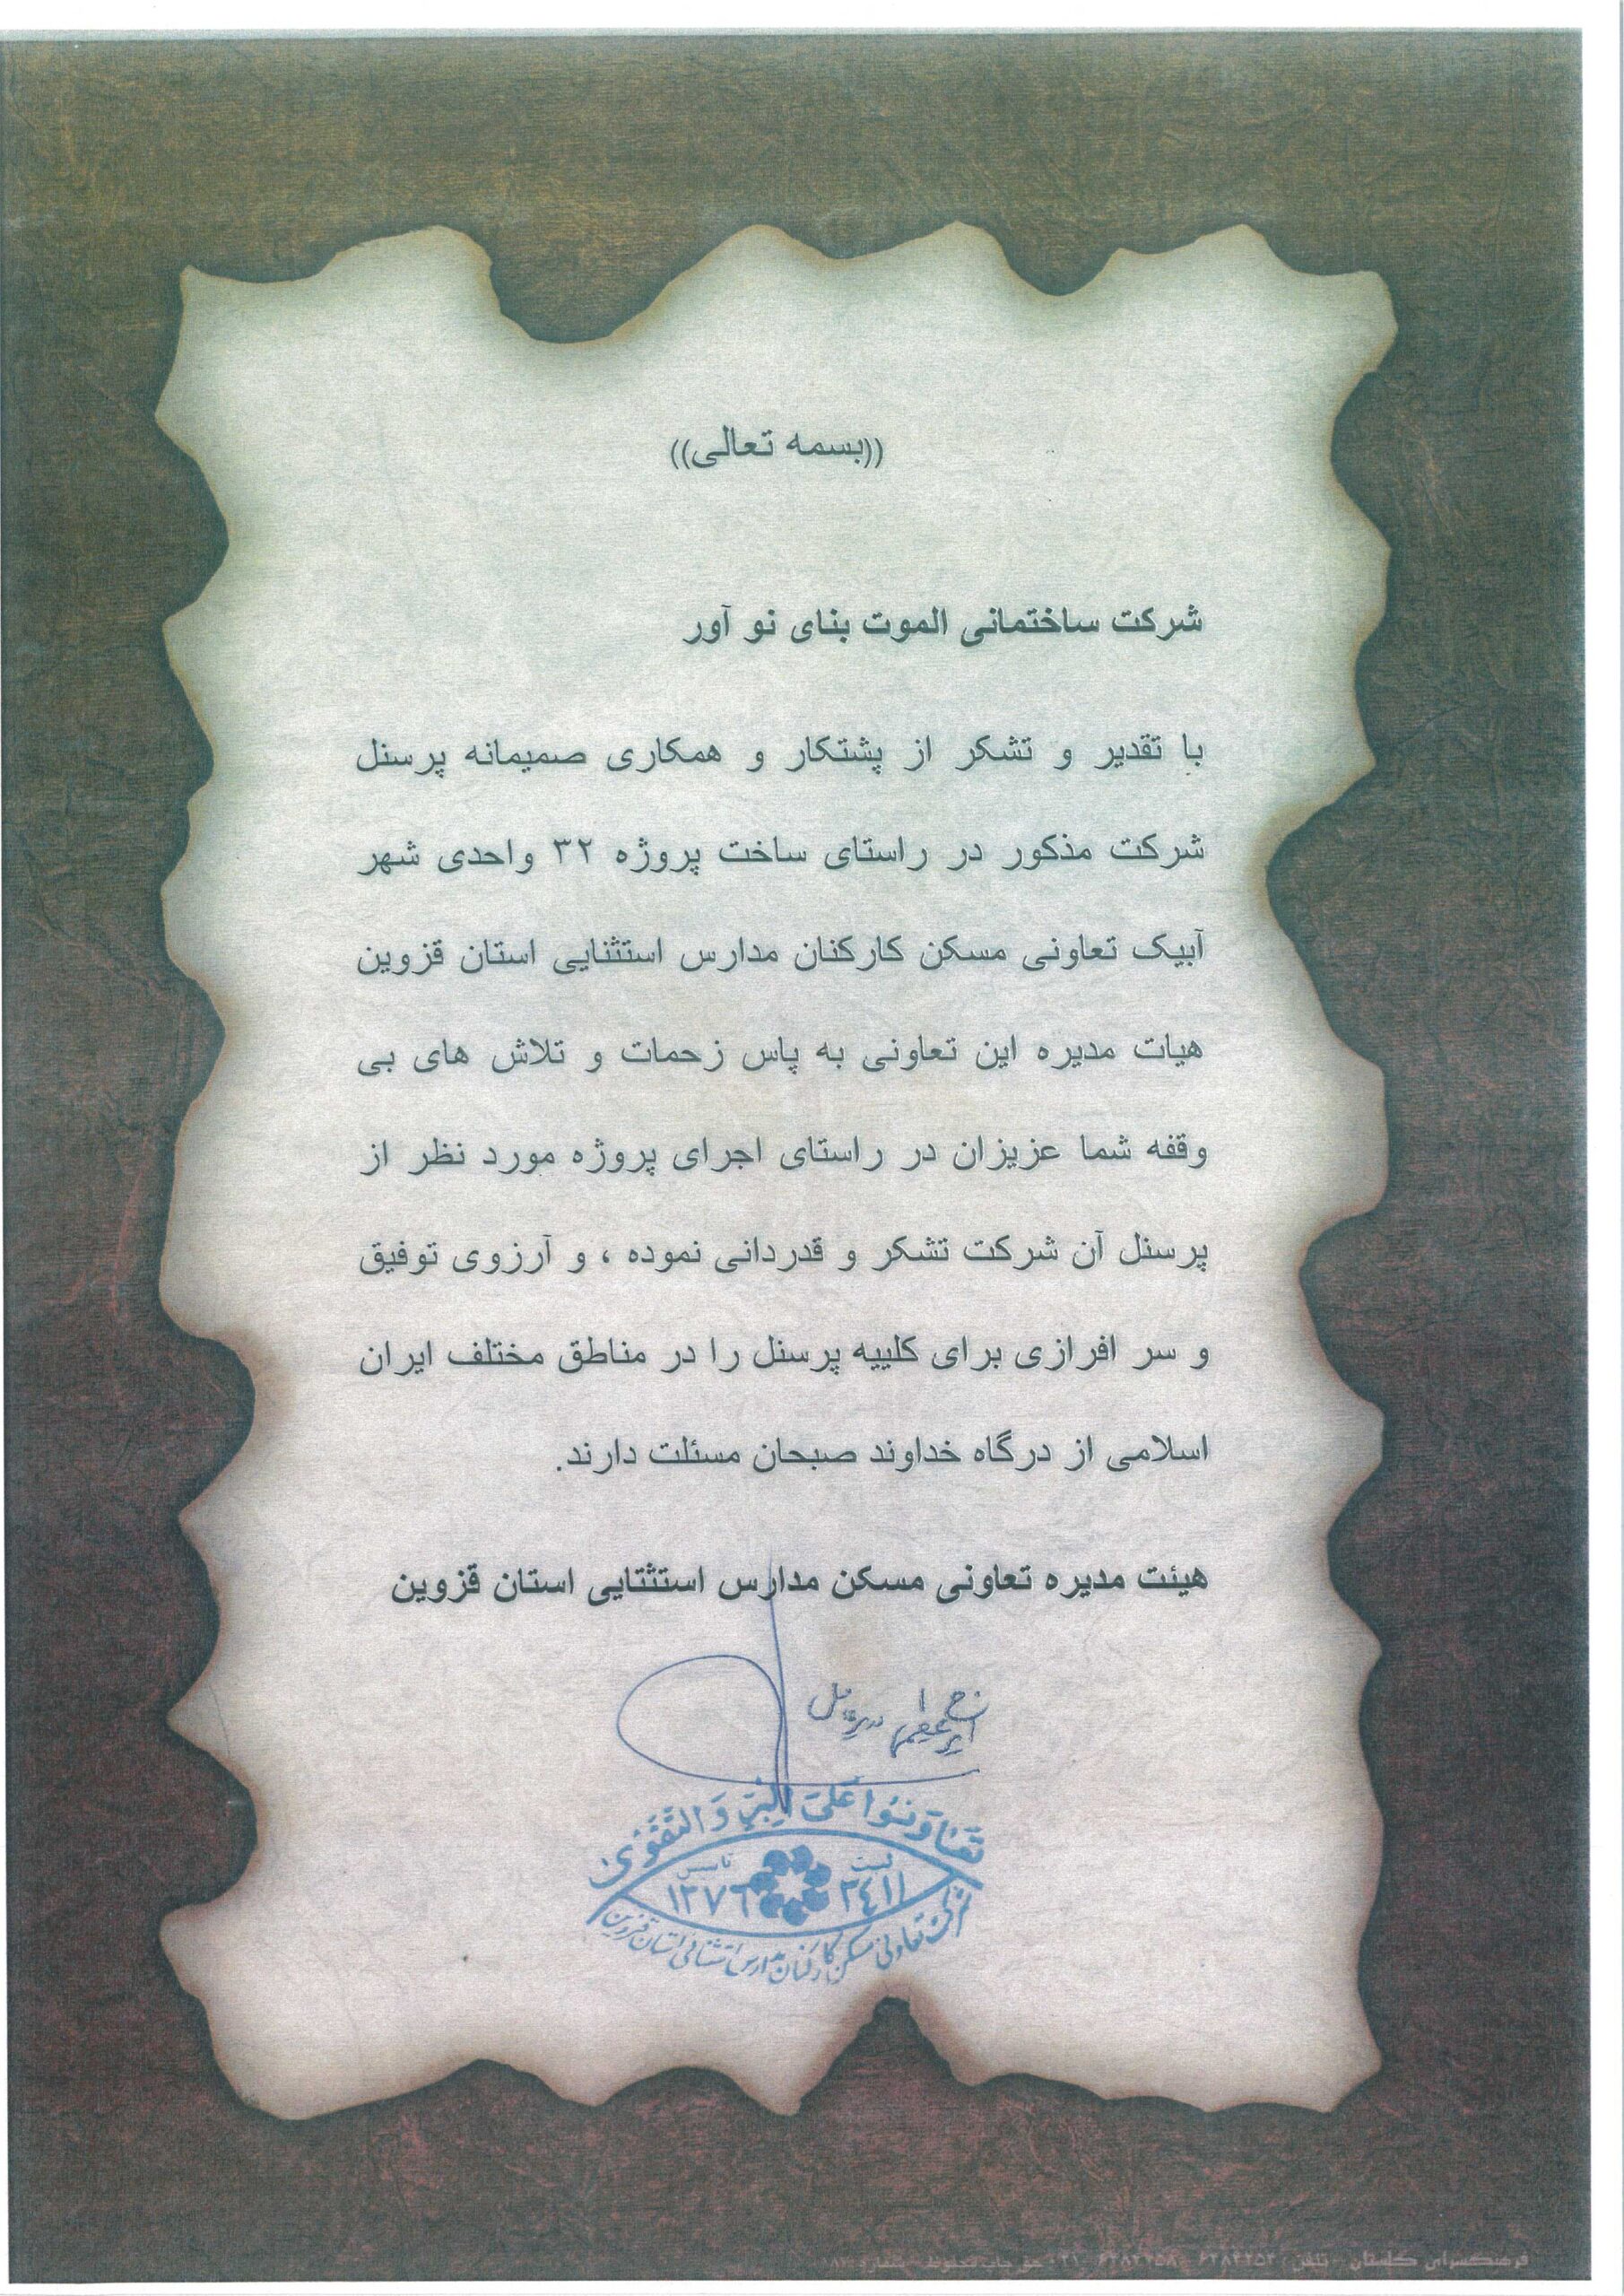 ((بسمه تعالی))
شرکت ساختمانی الموت بنای نو آور
با تقدیر و تشکر از پشتکار و همکاری صمیمانه پرسنل
شرکت مذکور در راستای ساخت پروژه ۳۲ واحدی شهر
آبیک تعاونی مسکن کارکنان مدارس استثنایی استان قزوین
هیات مدیره این تعاونی به پاس زحمات و تلاش های بی
وقفه شما عزیزان در راستای اجرای پروژه مورد نظر از
پرسنل آن شرکت تشکر و قدردانی نموده ، و آرزوی توفیق
و سر افرازی برای کلییه پرسنل را در مناطق مختلف ایران
اسلامی از درگاه خداوند صبحان مسئلت دارند.
هیئت مدیره تعاونی مسکن مدارس استثتایی استان قزوین
تَعاوَنوُا عَلَی البِرِّ وَ التَّقوی
ثبت تاسیس
۲٤۱۱ ۱۳۷٦
شرکت تعاونی مسکن کارکنان مدارس استثنائی استان قزوین
فرهنگسرای گلستان - تلفن :